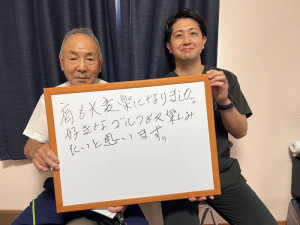 肩も大変楽になりました。
好きなゴルフを又楽しみ
たいと思います。